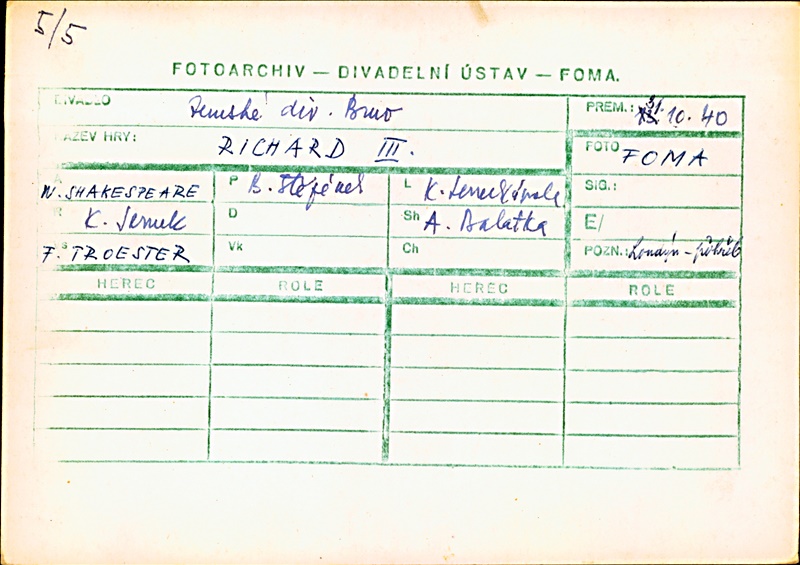 5/5
FOTOARCHIV — DIVADELNÍ ÚSTAV — FOMA.
DIVADLO Zemské div. Brno PREM.: 31. 10. 40
NÁZEV HRY: RICHARD III. FOTO FOMA
A W. SHAKESPEARE P B. Štěpánek L SIG.:
R K. Jernek D Sh A. Balatka E/
S F. TROESTER Vk Ch POZN.: Londýn - pohřeb
HEREC ROLE HEREC ROLE